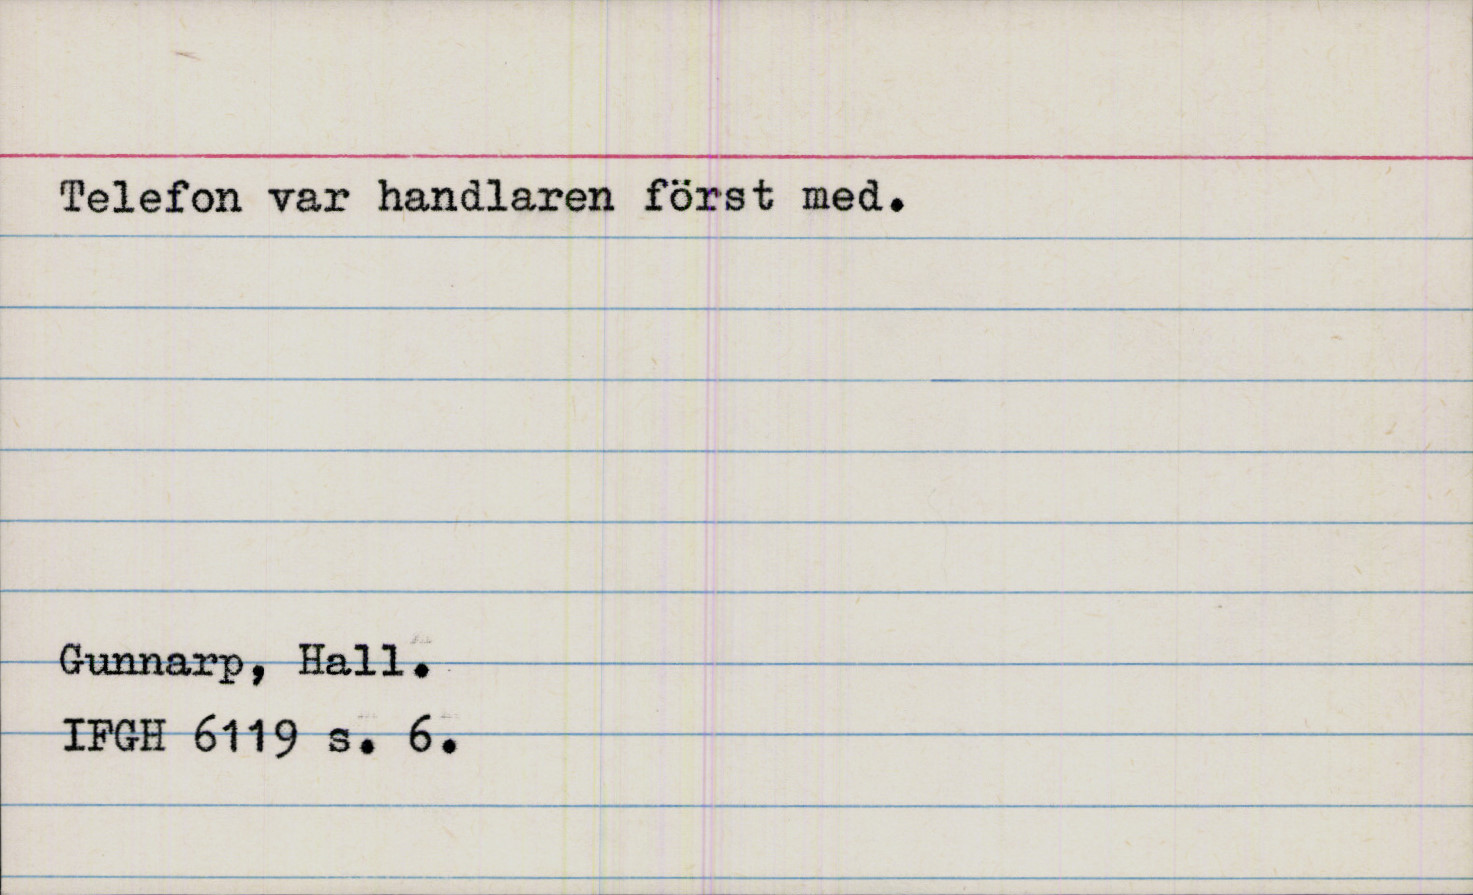 Telefon var handlaren först med.
Gunnarp, Hall.
IFGH 6119 s. 6.